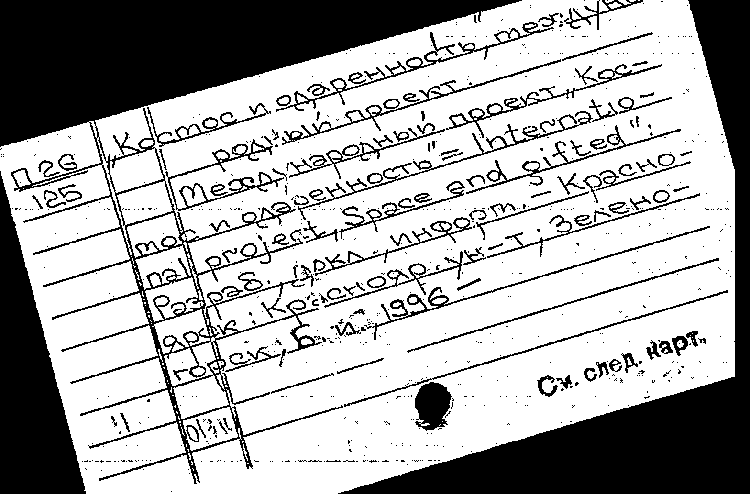 П 26
125
„Костос и одаренность", междуна-
родный проект.
Международный проект „Кос-
тос и одаренность" = Internatio-
nal project „Space and gifted":
Разраб., докл., информ. – Красно-
ярск: Краснояр. ун-т; Зелено-
горск; Б. и., 1996 –
Ч
См. след. карт.